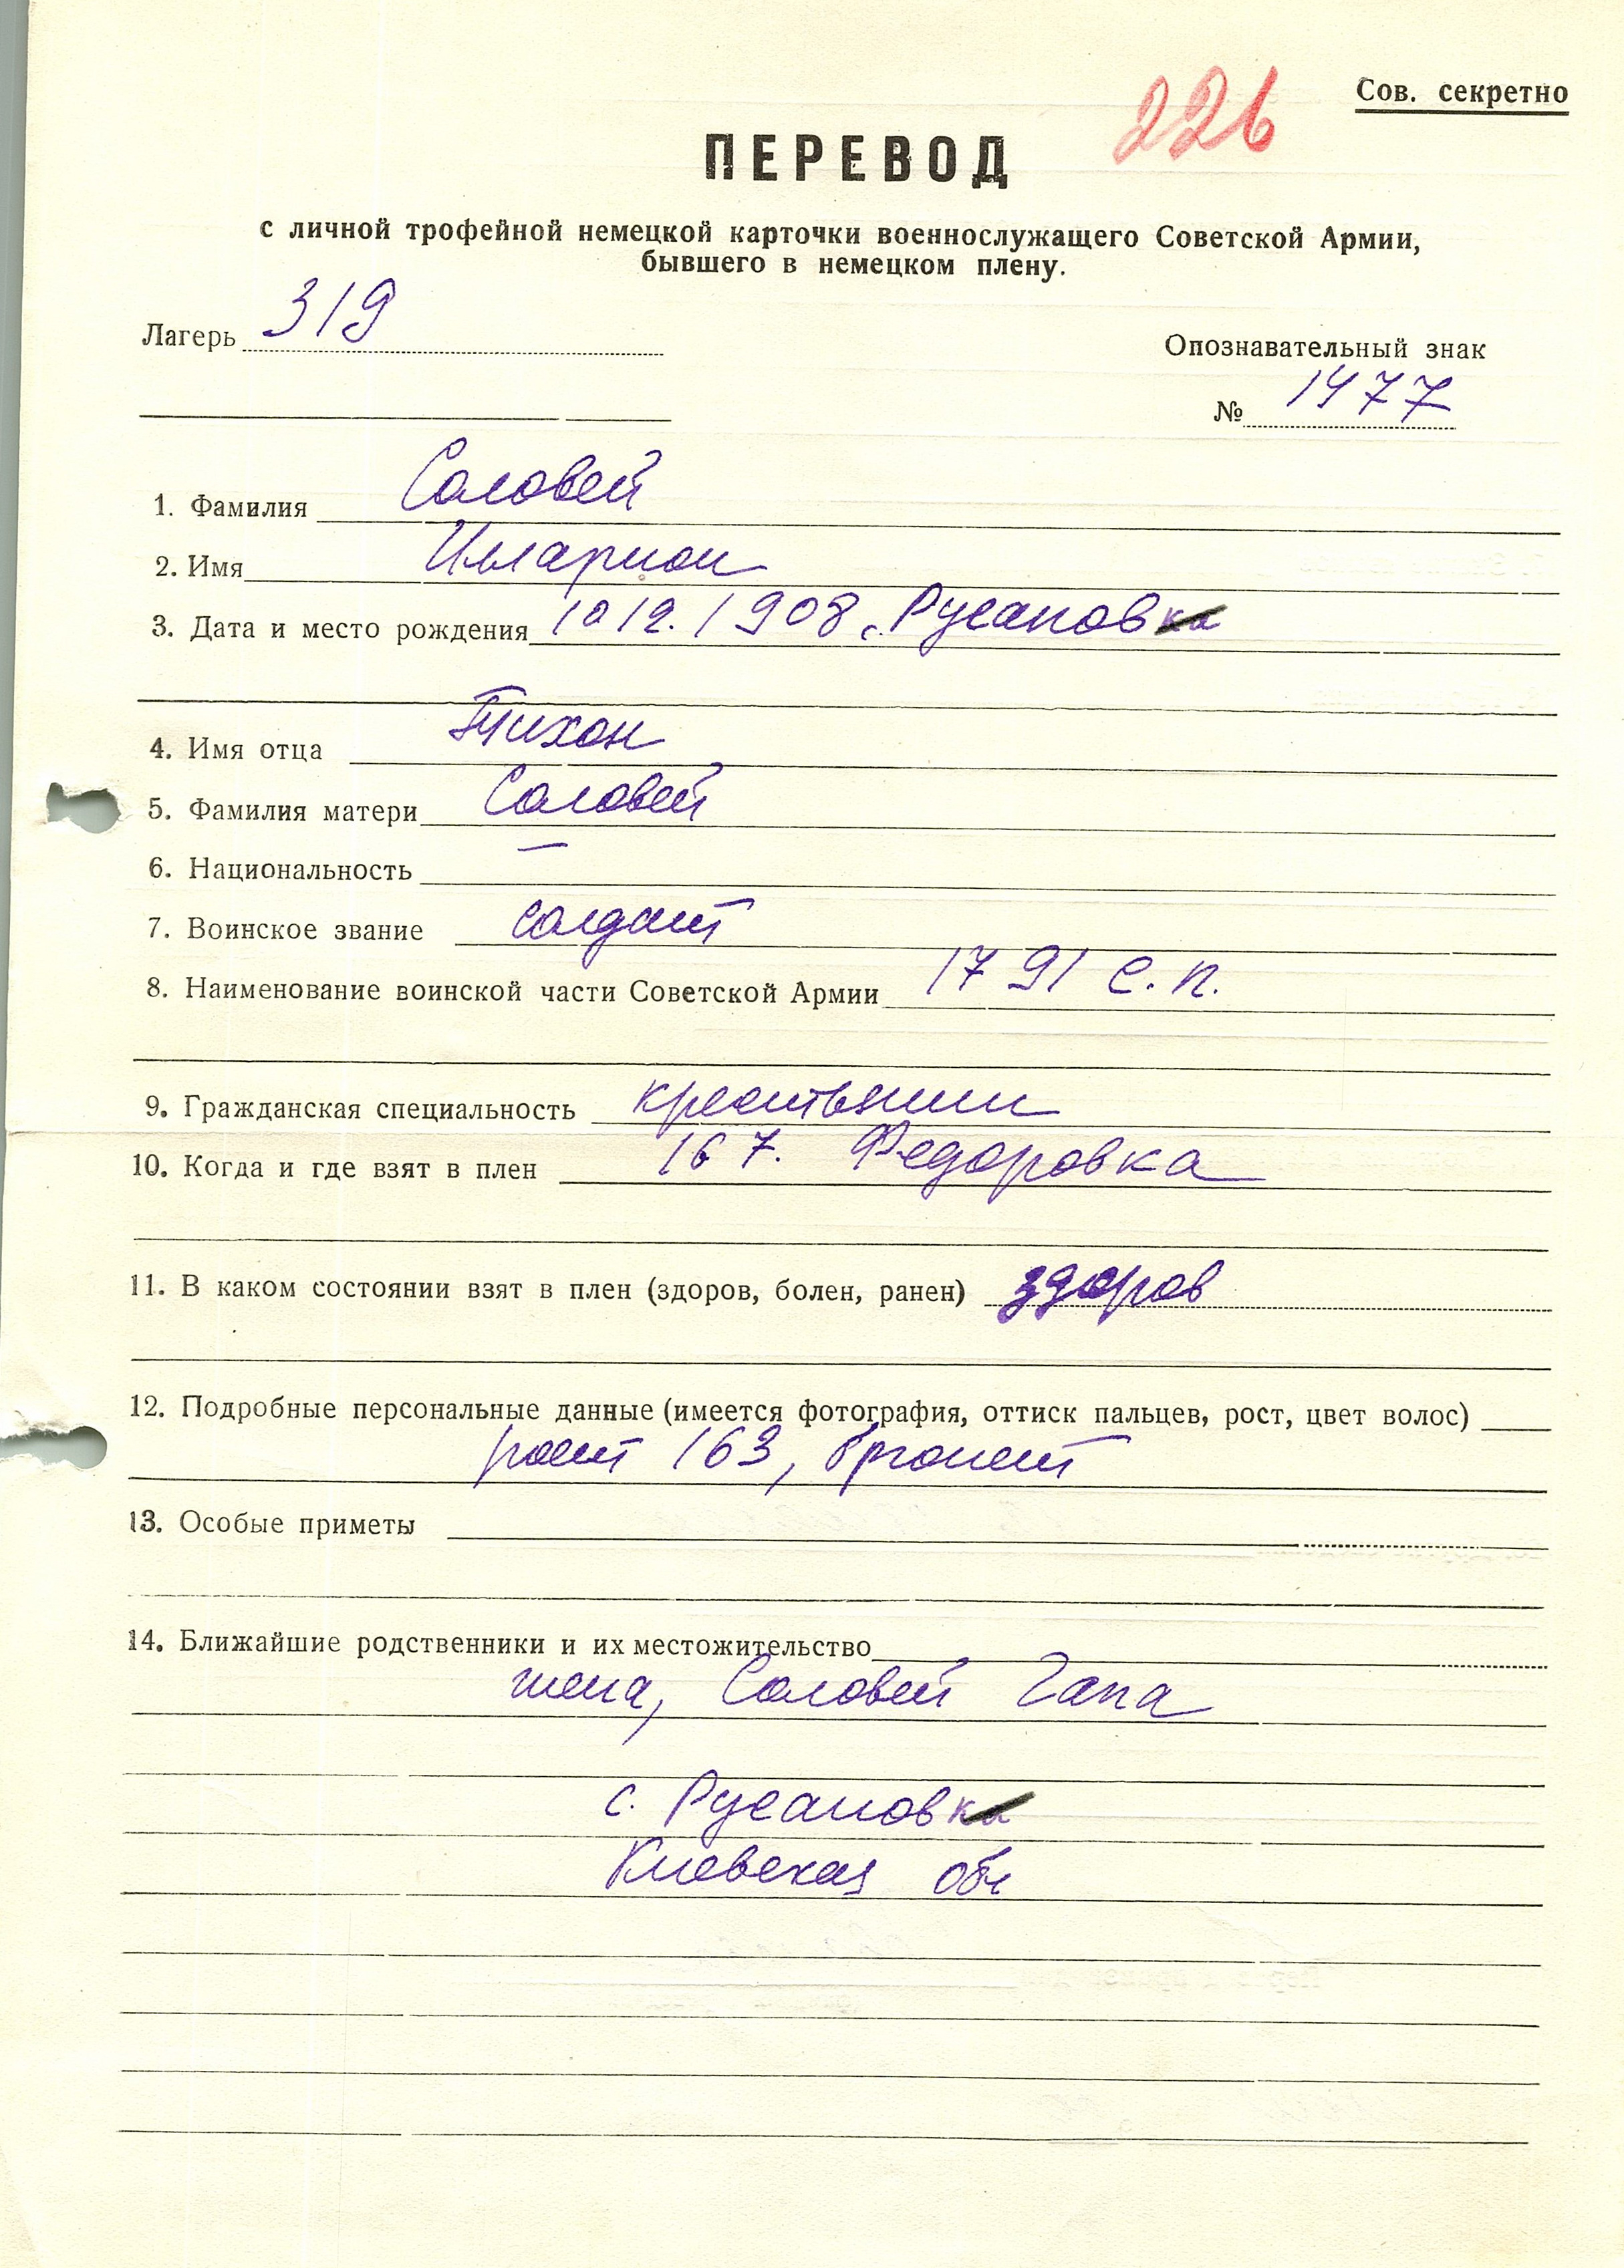 Сов. секретно
226
ПЕРЕВОД
с личной трофейной немецкой карточки военнослужащего Советской Армии,
бывшего в немецком плену.
Лагерь 319
Опознавательный знак
№ 1477
1. Фамилия Соловей
2. Имя Илларион
3. Дата и место рождения 10 12. 1908, с. Русановка
4. Имя отца Тихон
5. Фамилия матери Соловей
6. Национальность —
7. Воинское звание солдат
8. Наименование воинской части Советской Армии 1791 с.п.
9. Гражданская специальность крестьянин
10. Когда и где взят в плен 16 7. Федоровка
11. В каком состоянии взят в плен (здоров, болен, ранен) здоров
12. Подробные персональные данные (имеется фотография, оттиск пальцев, рост, цвет волос)
рост 163, брюнет
13. Особые приметы
14. Ближайшие родственники и их местожительство
жена, Соловей Гапа
с. Русановка
Киевская обл